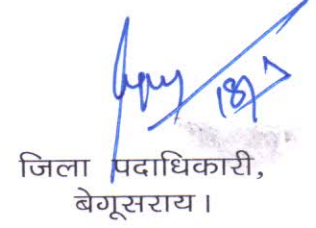 18/7
जिला पदाधिकारी,
बेगूसराय।